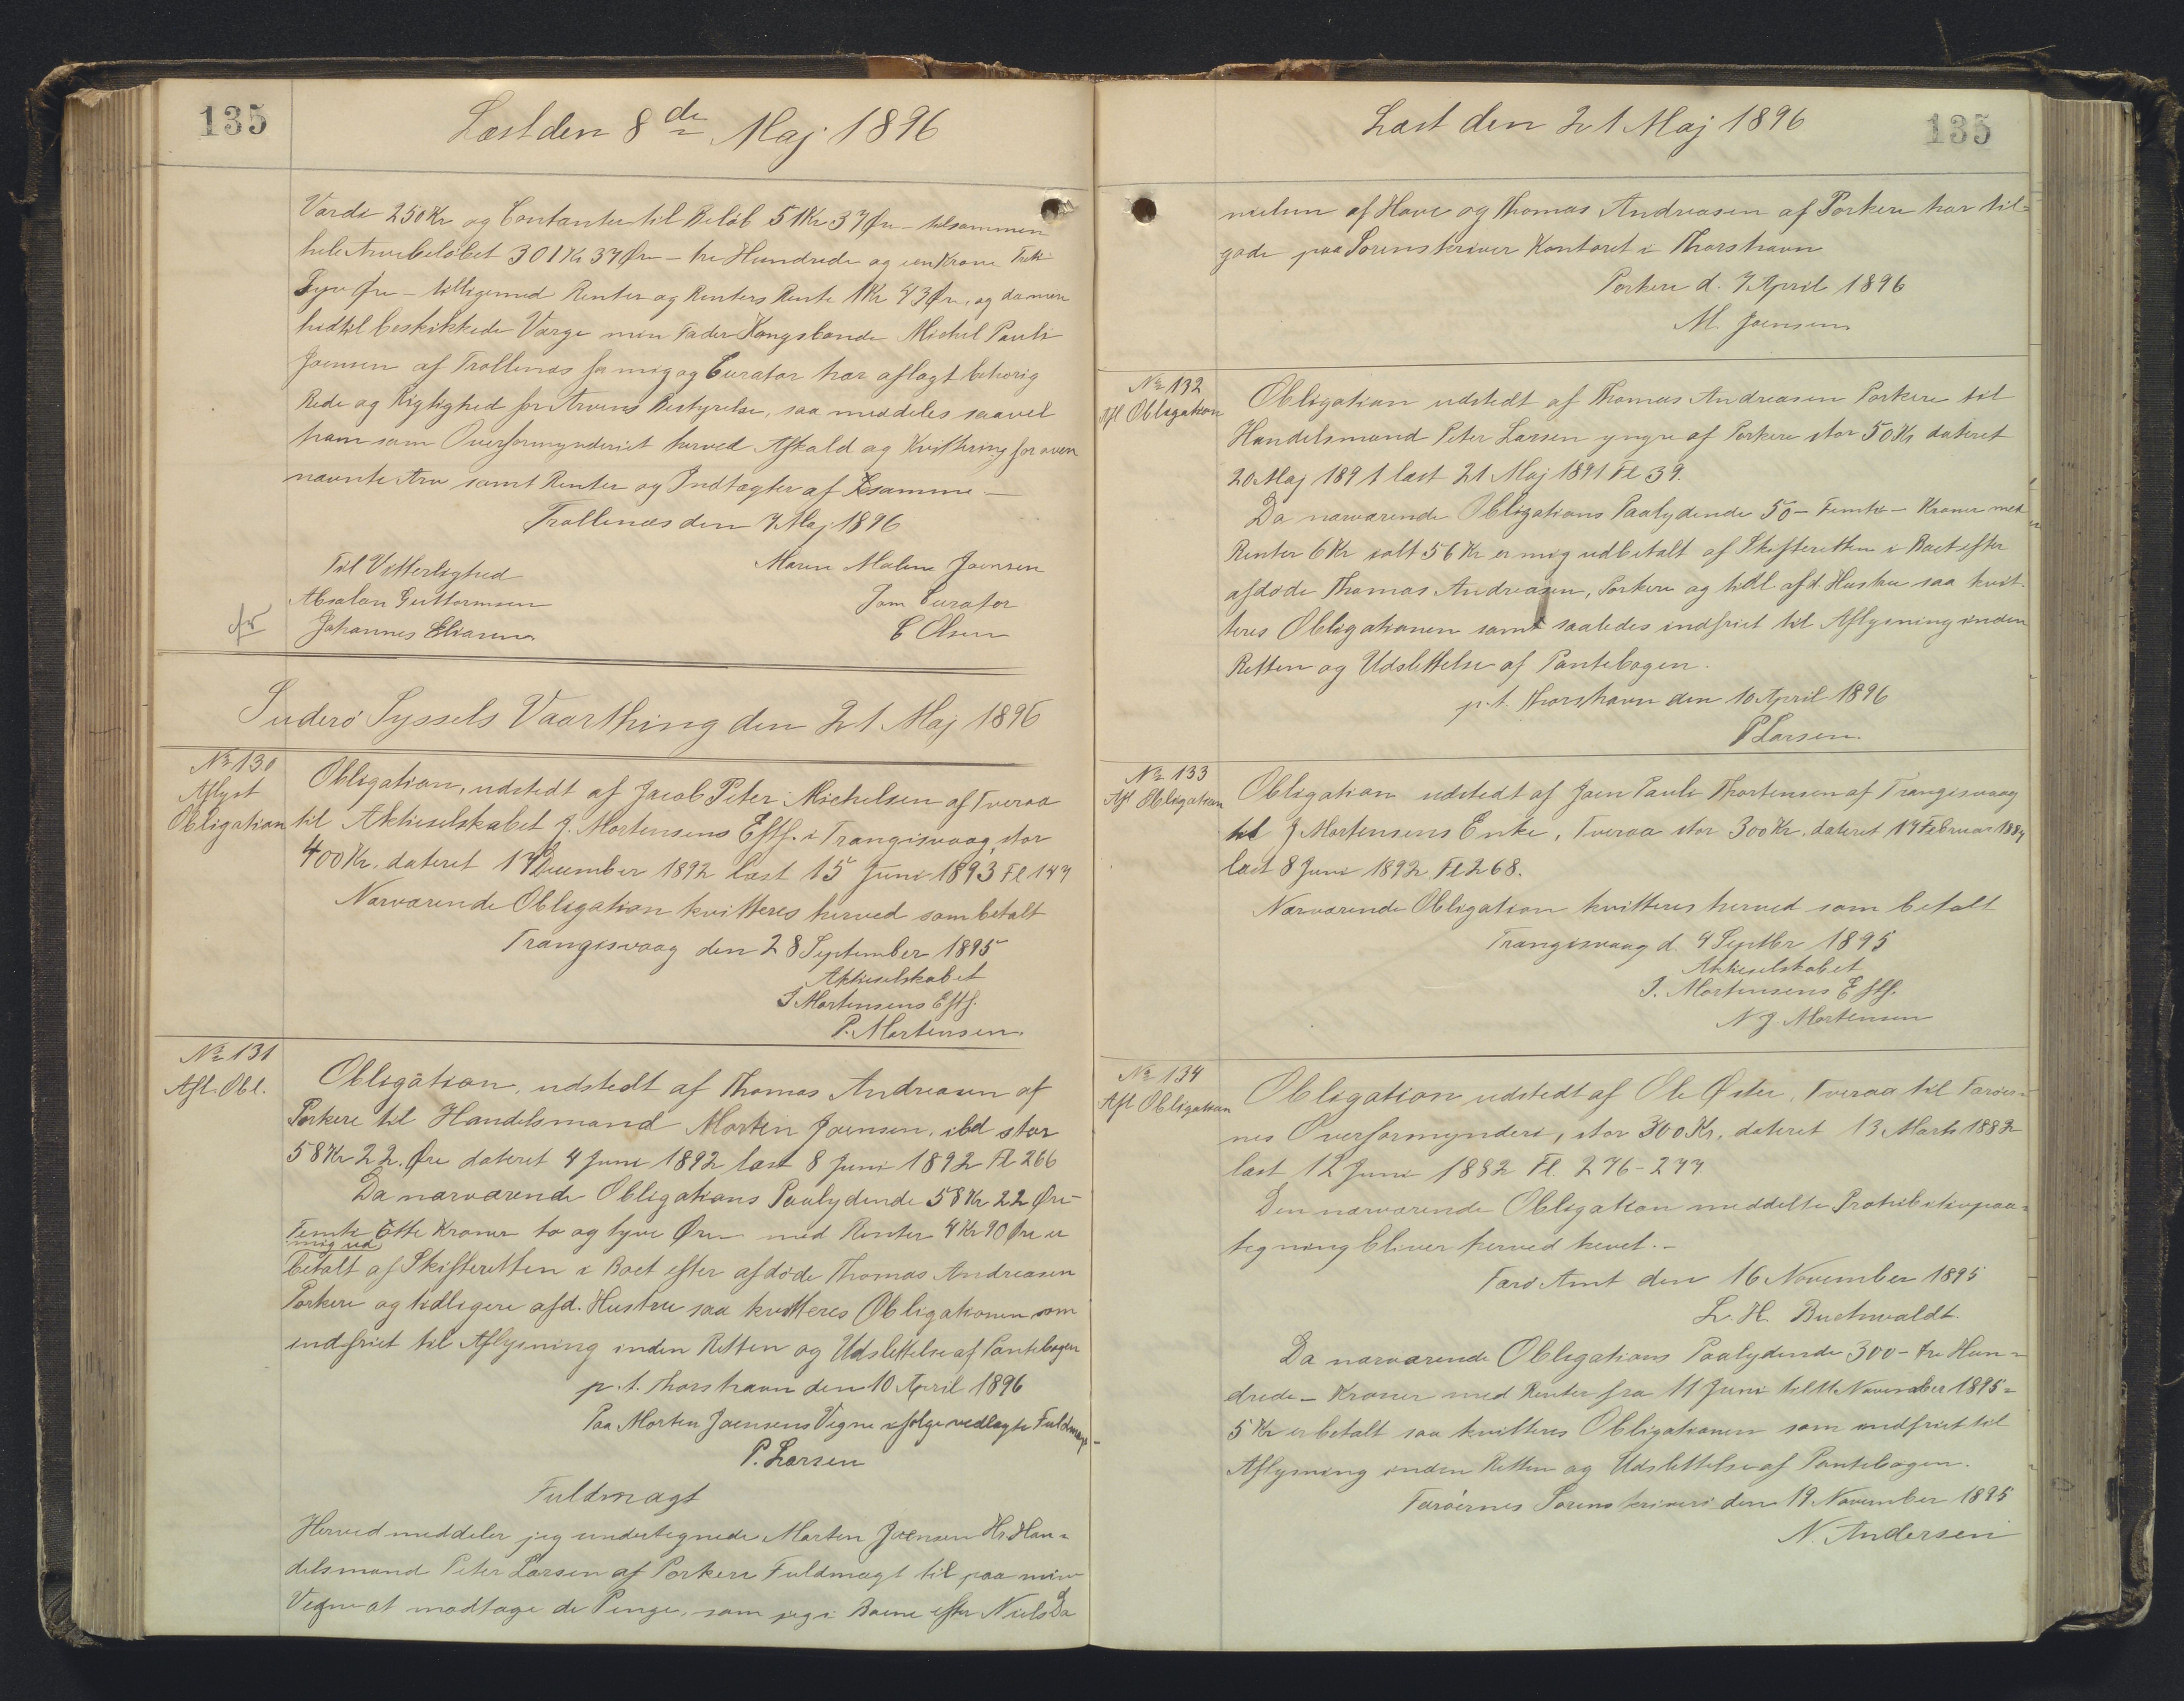 135
Læst den 8de Maj 1896
Værdi 250 Kr og Contanter til Beløb 51 Kr 37 Øre - tilsammen
hele Arvebeløbet 301 Kr 37 Øre - tre Hundrede og een Krone Treti
Syv Øre - tilligemed Renter og Renters Rente 1 Kr 43 Øre, og da min
hidtil beskikkede Værge min Fader Kongsbonde Michel Pauli
Joensen af Trøllenæs for mig og Curator har aflagt behørig
Rede og Rigtighed for Arvens Bestyrelse, saa meddeles saavel
ham som Overformynderiet herved Afkald og Kvittering for oven
nævnte Arv samt Renter og Indtægter af Samme -
Trøllenæs den 7 Maj 1896
Til Vitterlighed
Maren Malene Joensen
Absalon Guttormsen
Som Curator
Johannes Eliasen
C Olsen
Suderø Syssels Vaarthing den 21 Maj 1896
No 130
Aflyst
Obligation
Obligation, udstedt af Jacob Peter Michelsen af Tveraa
til Aktieselskabet J. Mortensens Eftf. i Trangisvaag, stor
400 Kr. dateret 17 December 1892 læst 15 Juni 1893 Fl 147
Nærværende Obligation kvitteres herved som betalt
Trangisvaag den 28 September 1895
Aktieselskabet
J. Mortensens Eftf.
P. Mortensen.
No 131
Afl. Obl.
Obligation, udstedt af Thomas Andreasen af
Porkere til Handelsmand Morten Joensen, ibd stor
58 Kr 22. Øre dateret 4 Juni 1892 læst 8 Juni 1892 Fl 266
Da nærværende Obligations Paalydende 58 Kr 22 Øre -
Femti Otte Kroner to og tyve Øre - med Renter 4 Kr 90 Øre er
mig ud
betalt af Skifteretten i Boet efter afdøde Thomas Andreasen
Porkere og tidligere afd. Hustru saa kvitteres Obligationen som
indfriet til Aflysning inden Retten og Udslettelse af Pantebogen
p. t. Thorshavn den 10 April 1896
Paa Morten Joensens Vegne ifølge vedlagte Fuldmagt
P. Larsen
Fuldmagt
Herved meddeler jeg undertegnede Morten Joensen Hr. Han=
delsmand Peter Larsen af Porkere Fuldmagt til paa mine
Vegne at modtage de Penge, som jeg i Boerne efter Niels Da
Læst den 21 Maj 1896
135
nielsen af Hove og Thomas Andreasen af Porkere har til=
gode paa Sorenskriver Kontoret i Thorshavn
Porkere d. 7 April 1896
M. Joensen
No 132
Afl Obligation
Obligation udstedt af Thomas Andreasen Porkere til
Handelsmand Peter Larsen yngre af Porkere stor 50 Kr dateret
20 Maj 1891 læst 21 Maj 1891 Fl 39.
Da nærværende Obligations Paalydende 50 - Femti - Kroner med
Renter 6 Kr ialt 56 Kr er mig udbetalt af Skifteretten i Boet efter
afdøde Thomas Andreasen, Porkere og tidl. afd. Hustru saa kvit
teres Obligationen samt saaledes indfriet til Aflysning inden
Retten og Udslettelse af Pantebogen.
p. t. Thorshavn den 10 April 1896
P Larsen.
No 133
Afl Obligation
Obligation udstedt af Joen Pauli Thortensen af Trangisvaag
til J Mortensens Enke, Tveraa stor 300 Kr. dateret 14 Februar 1884
læst 8 Juni 1892. Fl 268.
Nærværende Obligation kvitteres herved som betalt
Trangisvaag d. 4 Septbr 1895
Aktieselskabet
J. Mortensens Eftf.
N J Mortensen
No 134
Afl Obligation
Obligation udstedt af Ole Øster, Tveraa til Færøer=
nes Overformynderi, stor 300 Kr. dateret 13 Marts 1882
læst 12 Juni 1882 Fl. 276-277
Den nærværende Obligation meddelte Prohibitivpaa=
tegning bliver herved hevet. -
Færø Amt den 16 November 1895
L. H. Buchwaldt.
Da nærværende Obligations Paalydende 300 - tre Hun=
drede - Kroner med Renter fra 11 Juni til 11 November 1895 =
5 Kr er betalt saa kvitteres Obligationen som indfriet til
Aflysning inden Retten og Udslettelse af Pantebogen.
Færøernes Sorenskriveri den 19 November 1895
N. Andersen